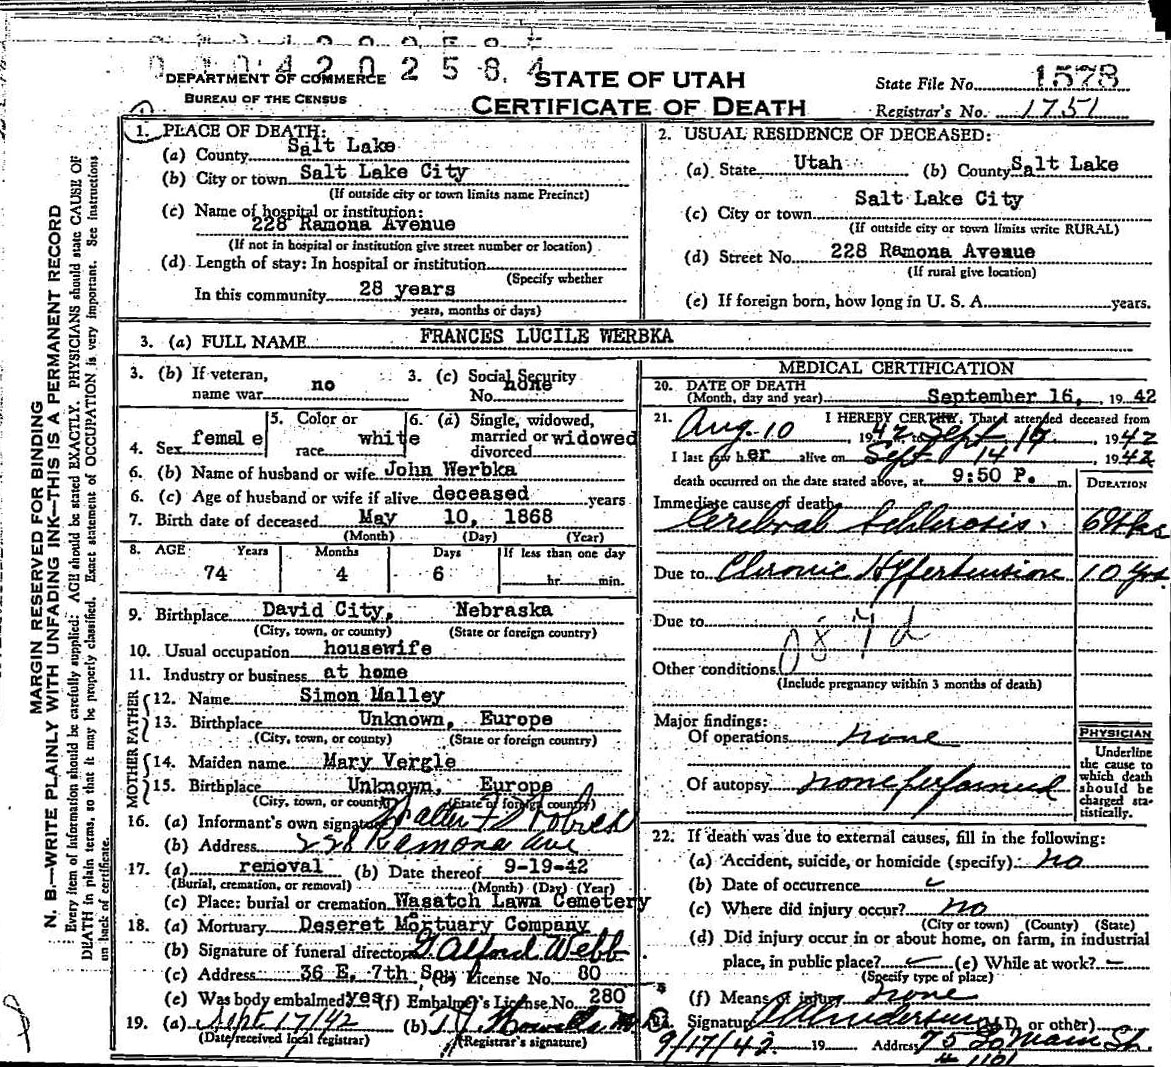 0 4 2 0 2 5 8 4
DEPARTMENT OF COMMERCE
BUREAU OF THE CENSUS
STATE OF UTAH
CERTIFICATE OF DEATH
State File No. 1578
Registrar's No. 1751
MARGIN RESERVED FOR BINDING
N. B.—WRITE PLAINLY WITH UNFADING INK—THIS IS A PERMANENT RECORD
Every item of information should be carefully supplied. AGE should be stated EXACTLY. PHYSICIANS should state CAUSE OF
DEATH in plain terms, so that it may be properly classified. Exact statement of OCCUPATION is very important. See instructions
on back of certificate.
1. PLACE OF DEATH:
(a) County Salt Lake
(b) City or town Salt Lake City
(If outside city or town limits name Precinct)
(c) Name of hospital or institution:
228 Ramona Avenue
(If not in hospital or institution give street number or location)
(d) Length of stay: In hospital or institution
(Specify whether
In this community 28 years
years, months or days)
2. USUAL RESIDENCE OF DECEASED:
(a) State Utah (b) County Salt Lake
(c) City or town Salt Lake City
(If outside city or town limits write RURAL)
(d) Street No. 228 Ramona Avenue
(If rural give location)
(e) If foreign born, how long in U. S. A. years.
3. (a) FULL NAME FRANCES LUCILE WERBKA
3. (b) If veteran, name war no
3. (c) Social Security No. none
4. Sex female
5. Color or race white
6. (a) Single, widowed, married or divorced widowed
6. (b) Name of husband or wife John Werbka
6. (c) Age of husband or wife if alive deceased years
7. Birth date of deceased May 10, 1868
(Month) (Day) (Year)
8. AGE Years Months Days If less than one day
74 4 6 hr. min.
9. Birthplace David City, Nebraska
(City, town, or county) (State or foreign country)
10. Usual occupation housewife
11. Industry or business at home
FATHER
12. Name Simon Malley
13. Birthplace Unknown, Europe
(City, town, or county) (State or foreign country)
MOTHER
14. Maiden name Mary Vergle
15. Birthplace Unknown, Europe
(City, town, or county) (State or foreign country)
16. (a) Informant's own signature Walter
(b) Address 228 Ramona Ave
17. (a) removal (b) Date thereof 9-19-42
(Burial, cremation, or removal) (Month) (Day) (Year)
(c) Place: burial or cremation Wasatch Lawn Cemetery
18. (a) Mortuary Deseret Mortuary Company
(b) Signature of funeral director Alford Webb
(c) Address 36 E. 7th Sou License No. 80
(e) Was body embalmed yes (f) Embalmer's License No. 280
19. (a) Sept 17/42 (b)
(Date received local registrar) (Registrar's signature)
MEDICAL CERTIFICATION
20. DATE OF DEATH
(Month, day and year) September 16, 1942
21. I HEREBY CERTIFY, That I attended deceased from
Aug. 10, 1942 to Sept 16, 1942
I last saw her alive on Sept 14 1942
death occurred on the date stated above, at 9:50 P. m.
DURATION
Immediate cause of death
Cerebral Schlerosis.
Due to Chronic Hypertension 10 Yrs.
Due to
Other conditions
(Include pregnancy within 3 months of death)
Major findings:
Of operations none
Of autopsy none performed
PHYSICIAN
Underline
the cause to
which death
should be
charged sta-
tistically.
22. If death was due to external causes, fill in the following:
(a) Accident, suicide, or homicide (specify): no
(b) Date of occurrence
(c) Where did injury occur? no
(City or town) (County) (State)
(d) Did injury occur in or about home, on farm, in industrial
place, in public place? (e) While at work? —
(Specify type of place)
(f) Means of injury none
Signature (M.D. or other)
9/17/42 19 Address 75 So Main St.
# 1101